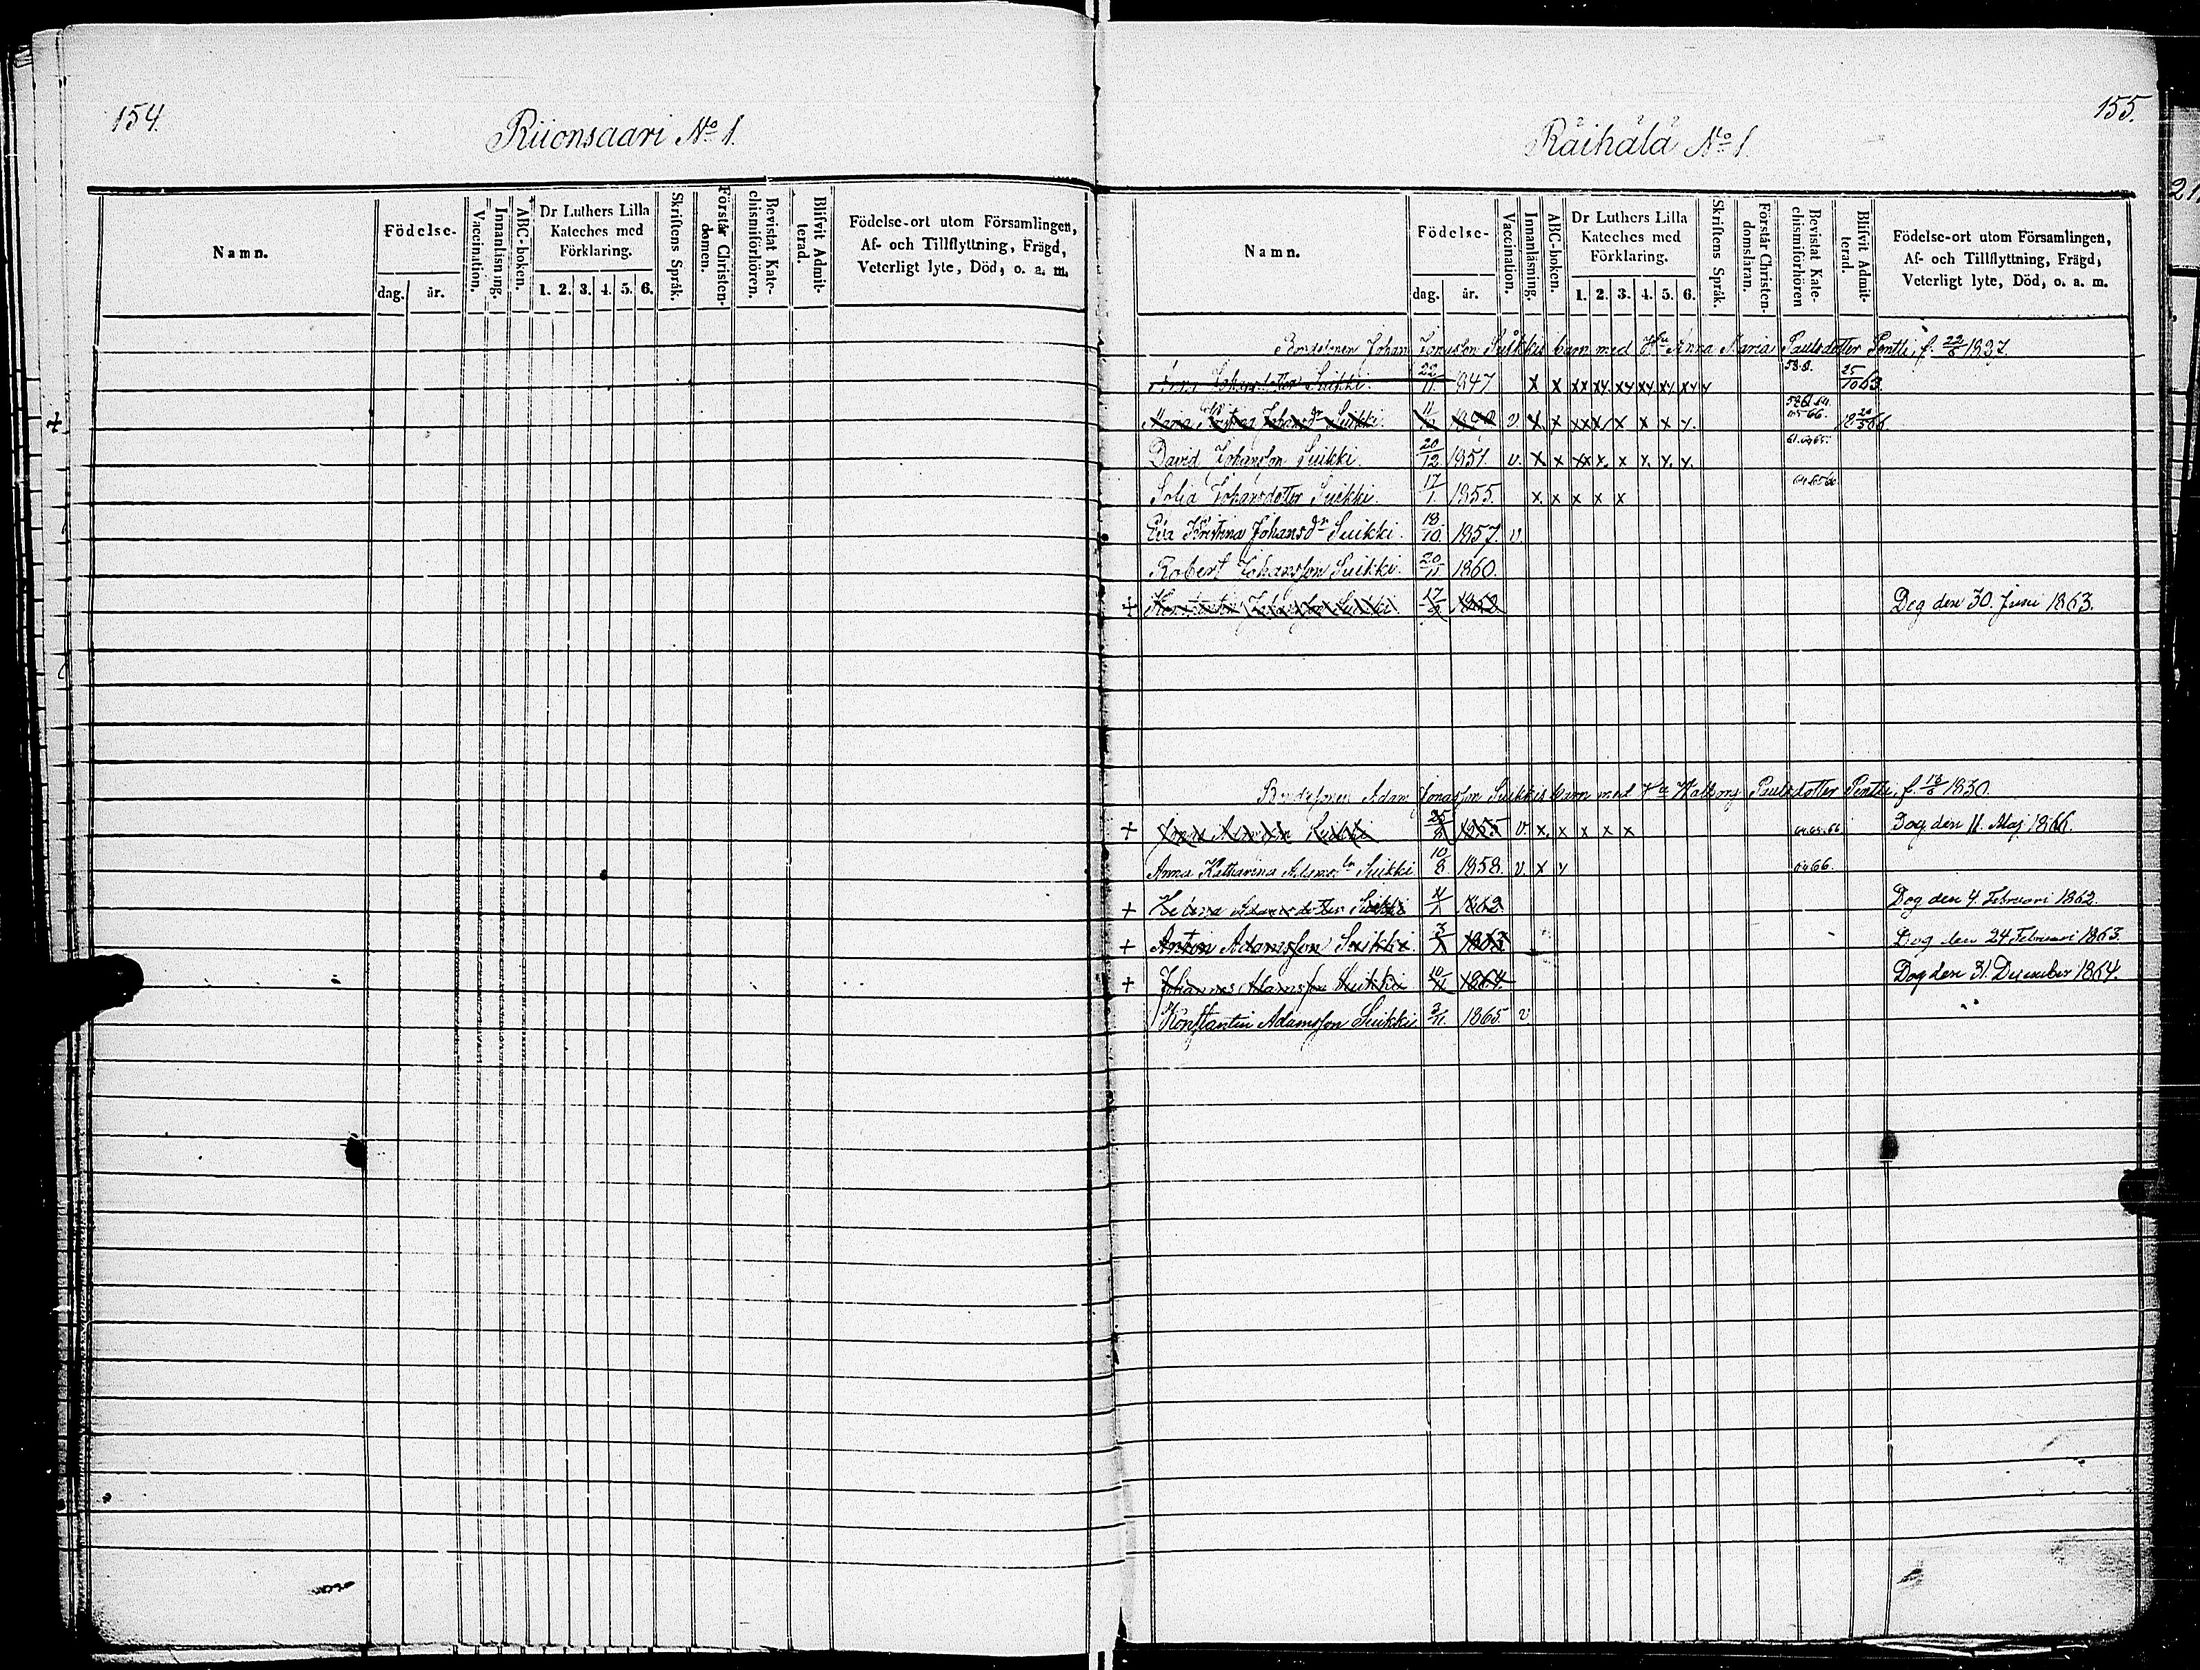 154.
Riionsaari No 1.
Namn.
Födelse-
dag. år.
Vaccination.
Innanläsning.
ABC-boken.
Dr Luthers Lilla Kateches med Förklaring.
1. 2. 3. 4. 5. 6.
Skriftens Språk.
Förstår Christen-domen.
Bevistat Kate-chismiförhören.
Blifvit Admit-terad.
Födelse-ort utom Församlingen, Af- och Tillflyttning, Frägd, Veterligt lyte, Död, o. a. m.
155.
Räihälä No 1.
Namn.
Födelse-
dag. år.
Vaccination.
Innanläsning.
ABC-boken.
Dr Luthers Lilla Kateches med Förklaring.
1. 2. 3. 4. 5. 6.
Skriftens Språk.
Förstår Christen-domsläran.
Bevistat Kate-chismiförhören
Blifvit Admit-terad.
Födelse-ort utom Församlingen, Af- och Tillflyttning, Frägd, Veterligt lyte, Död, o. a. m.
Johan Jonasson Suikkis barn med Hu Anna Maria Paulsdotter Pentti, f. 22/6 1827.
Johansdotter Suikki. 22/11 1847 x x xx xy xy xy xy xy y 58. 25/10 63.
Maria Johansdr Suikki. v x x xx x x x x y. 65-66.
David Johansson Suikki. 20/12 1851. v. x x xx x. x x. x. x.
Sofia Johansdotter Suikki. 17/1 1855. x. x x x x
Eva Kristina Johansdr Suikki. 18/10 1857. v
Robert Johansson Suikki. 20/11 1860.
+ Konstantin Johansson Suikki. 17/ Dog den 30. Juni 1863.
Adam Jonasson Suikkis barn med Hu Walborg Paulsdotter Pentti, f. 18/6 1830.
+ Jonas Adamsson Suikki 25/8 1855 v. x. x x x x 64.65.66 Dog den 11. Maj 1866.
Anna Katharina Adamsdr Suikki 10/8 1858. v. x y 6466.
+ Helena Adamsdotter Suikki 4/1 1862 Dog den 4. Februari 1862.
+ Anton Adamsson Suikki. 3/1 1863 Dog den 24 Februari 1863.
+ Johannes Adamsson Suikki 10/11 1864. Dog den 31. December 1864.
Konstantin Adamsson Suikki 3/11. 1865. v.